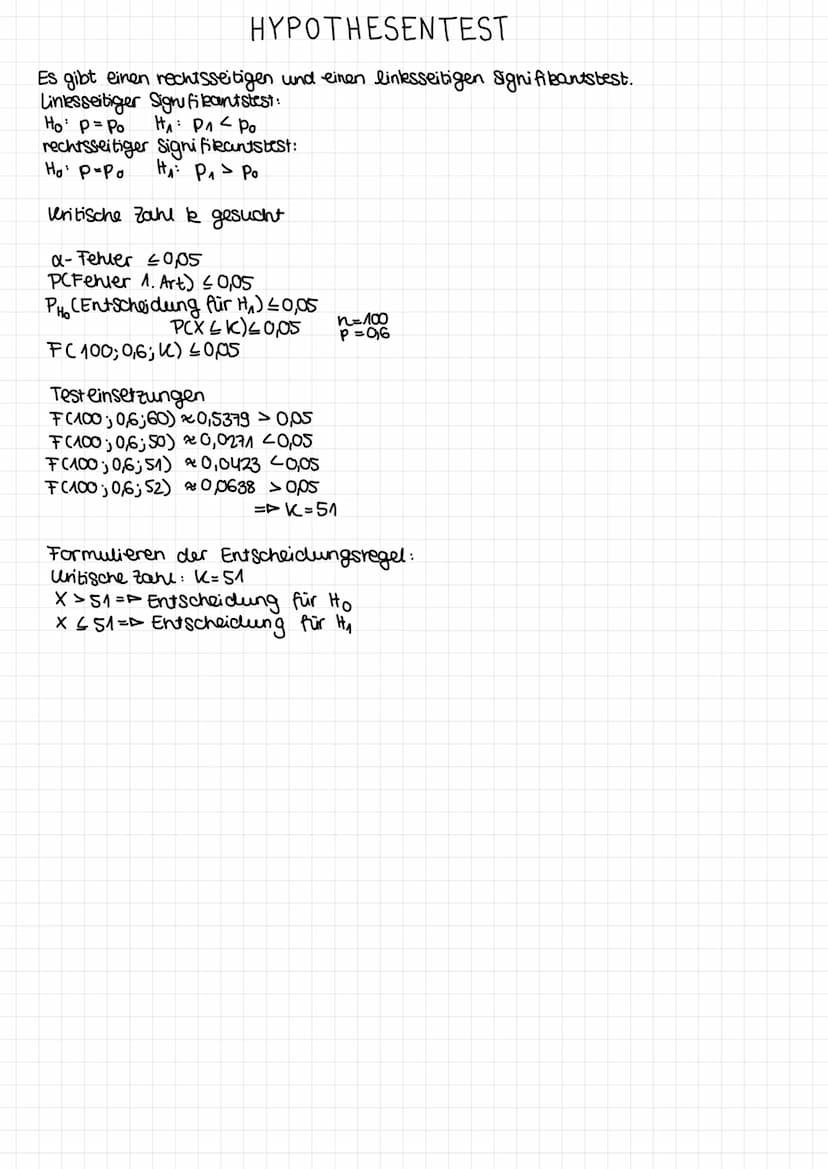 HYPOTHESENTEST
Es gibt einen rechtsseitigen und einen linksseitigen Signifikantstest.
Linksseitiger Signifikantstest:
H₀: p = p₀ H₁: p₁ < p₀
rechtsseitiger Signifikantstest:
H₀: p = p₀ H₁: p₁ > p₀
Kritische Zahl k gesucht
α-Fehler ≤ 0,05
P(Fehler 1. Art) ≤ 0,05
P_H₀ (Entscheidung für H₁) ≤ 0,05
P(X ≤ K) ≤ 0,05 n=100
p=0,6
F(100; 0,6; K) ≤ 0,05
Testeinsetzungen
F(100; 0,6; 60) ≈ 0,5379 > 0,05
F(100; 0,6; 50) ≈ 0,0271 < 0,05
F(100; 0,6; 51) ≈ 0,0423 < 0,05
F(100; 0,6; 52) ≈ 0,0638 > 0,05
=▷ K = 51
Formulieren der Entscheidungsregel:
Kritische Zahl: K = 51
X > 51 =▷ Entscheidung für H₀
X ≤ 51 =▷ Entscheidung für H₁